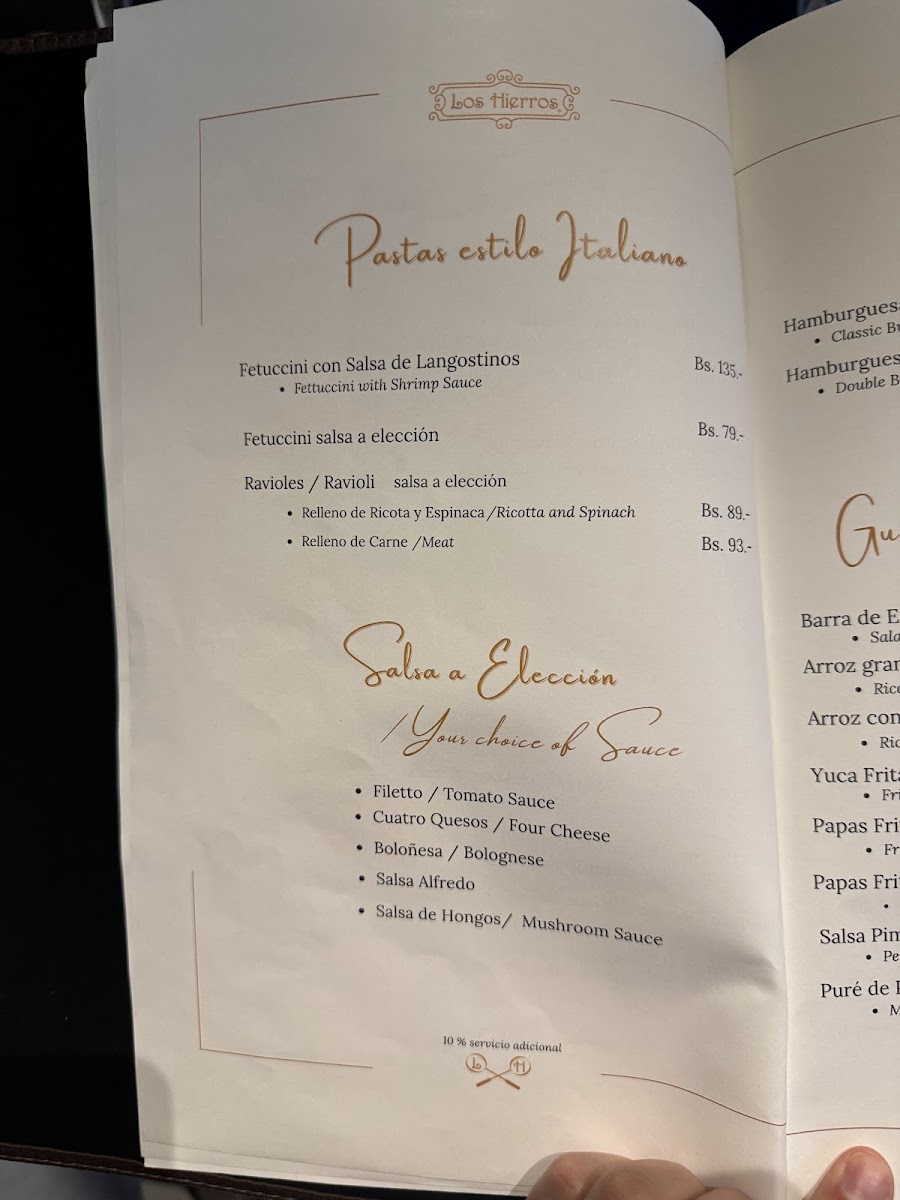 Los Hierros
Pastas estilo Italiano
Fetuccini con Salsa de Langostinos Bs. 135.-
• Fettuccini with Shrimp Sauce
Fetuccini salsa a elección Bs. 79.-
Ravioles / Ravioli salsa a elección
• Relleno de Ricota y Espinaca /Ricotta and Spinach Bs. 89.-
• Relleno de Carne /Meat Bs. 93.-
Salsa a Elección
/Your choice of Sauce
• Filetto / Tomato Sauce
• Cuatro Quesos / Four Cheese
• Boloñesa / Bolognese
• Salsa Alfredo
• Salsa de Hongos/ Mushroom Sauce
10 % servicio adicional
L H
Hamburguesa
• Classic
Hamburgues
• Double
Barra de
•
Arroz
• Rice
Arroz con
•
Yuca
•
Papas
•
Papas
•
Salsa
•
Puré de
•